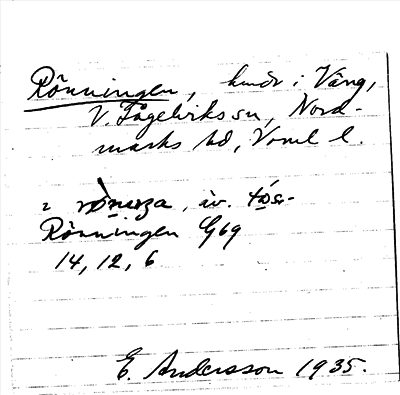 Rönningen, hmdr i Vång,
V. Fågelviks sn, Nord-
marks hd, Vrml l.
Rönningen G69
14, 12, 6
E. Andersson 1935.